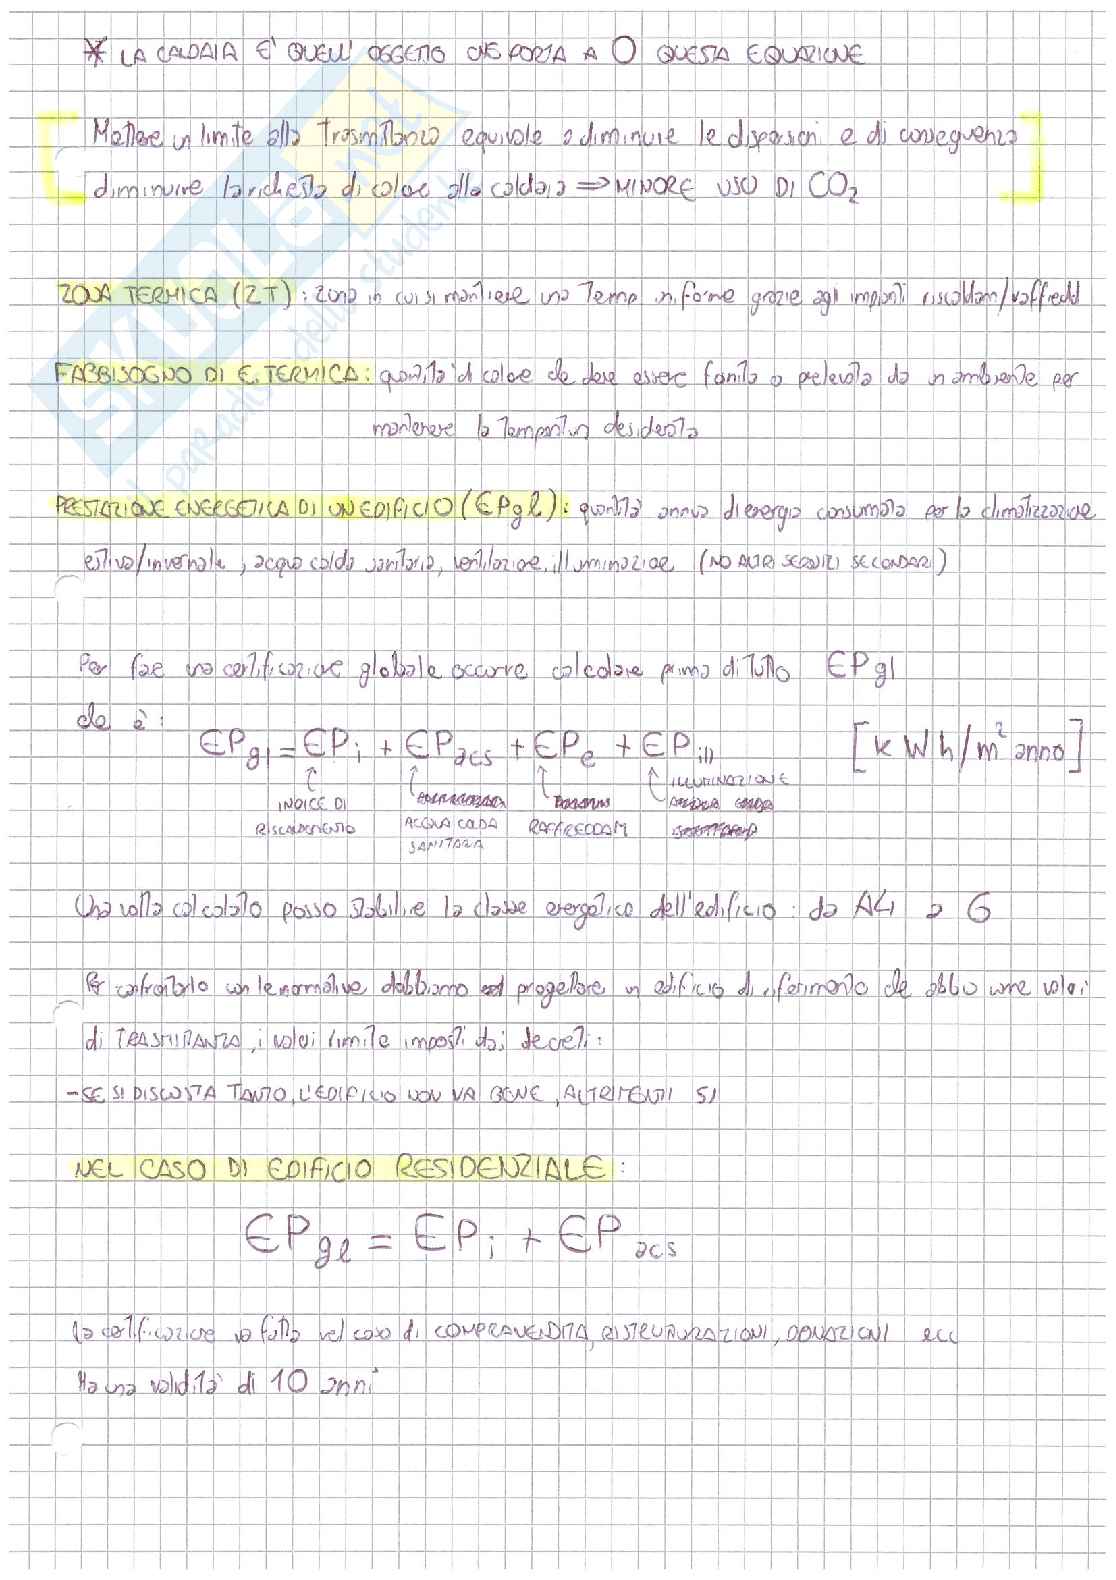 * LA CALDAIA E' QUELL' OGGETTO CHE PORTA A 0 QUESTA EQUAZIONE
Mettere un limite alla trasmittanza equivale a diminuire le dispersioni e di conseguenza
diminuire la richiesta di calore alla caldaia ⇒ MINORE USO DI CO₂
ZONA TERMICA (ZT): zona in cui si mantiene una temp uniforme grazie agli impianti riscaldam/raffredd
FABBISOGNO DI E. TERMICA: quantità di calore che deve essere fornita o prelevata da un ambiente per
mantenere la temperatura desiderata
PRESTAZIONE ENERGETICA DI UN EDIFICIO (EPgl): quantità annua di energia consumata per la climatizzazione
estiva/invernale, acqua calda sanitaria, ventilazione, illuminazione (NO ALTRI SERVIZI SECONDARI)
Per fare una certificazione globale occorre calcolare prima di tutto EPgl
che è:
EPgl = EPi + EPacs + EPe + EPill [kWh/m² anno]
INDICE DI RISCALDAMENTO
ACQUA CALDA SANITARIA
RAFFREDDAM
ILLUMINAZIONE
Una volta calcolato posso stabilire la classe energetica dell'edificio: da A4 a G
Per confrontarlo con le normative dobbiamo progettare un edificio di riferimento che abbia come valori
di TRASMITTANZA, i valori limite imposti dai decreti:
- SE SI DISCOSTA TANTO, L'EDIFICIO NON VA BENE, ALTRIMENTI SI
NEL CASO DI EDIFICIO RESIDENZIALE:
EPgl = EPi + EPacs
La certificazione va fatta nel caso di COMPRAVENDITA, RISTRUTTURAZIONI, DONAZIONI ecc
Ha una validità di 10 anni
SKUOLA.net
il paradiso dello studente